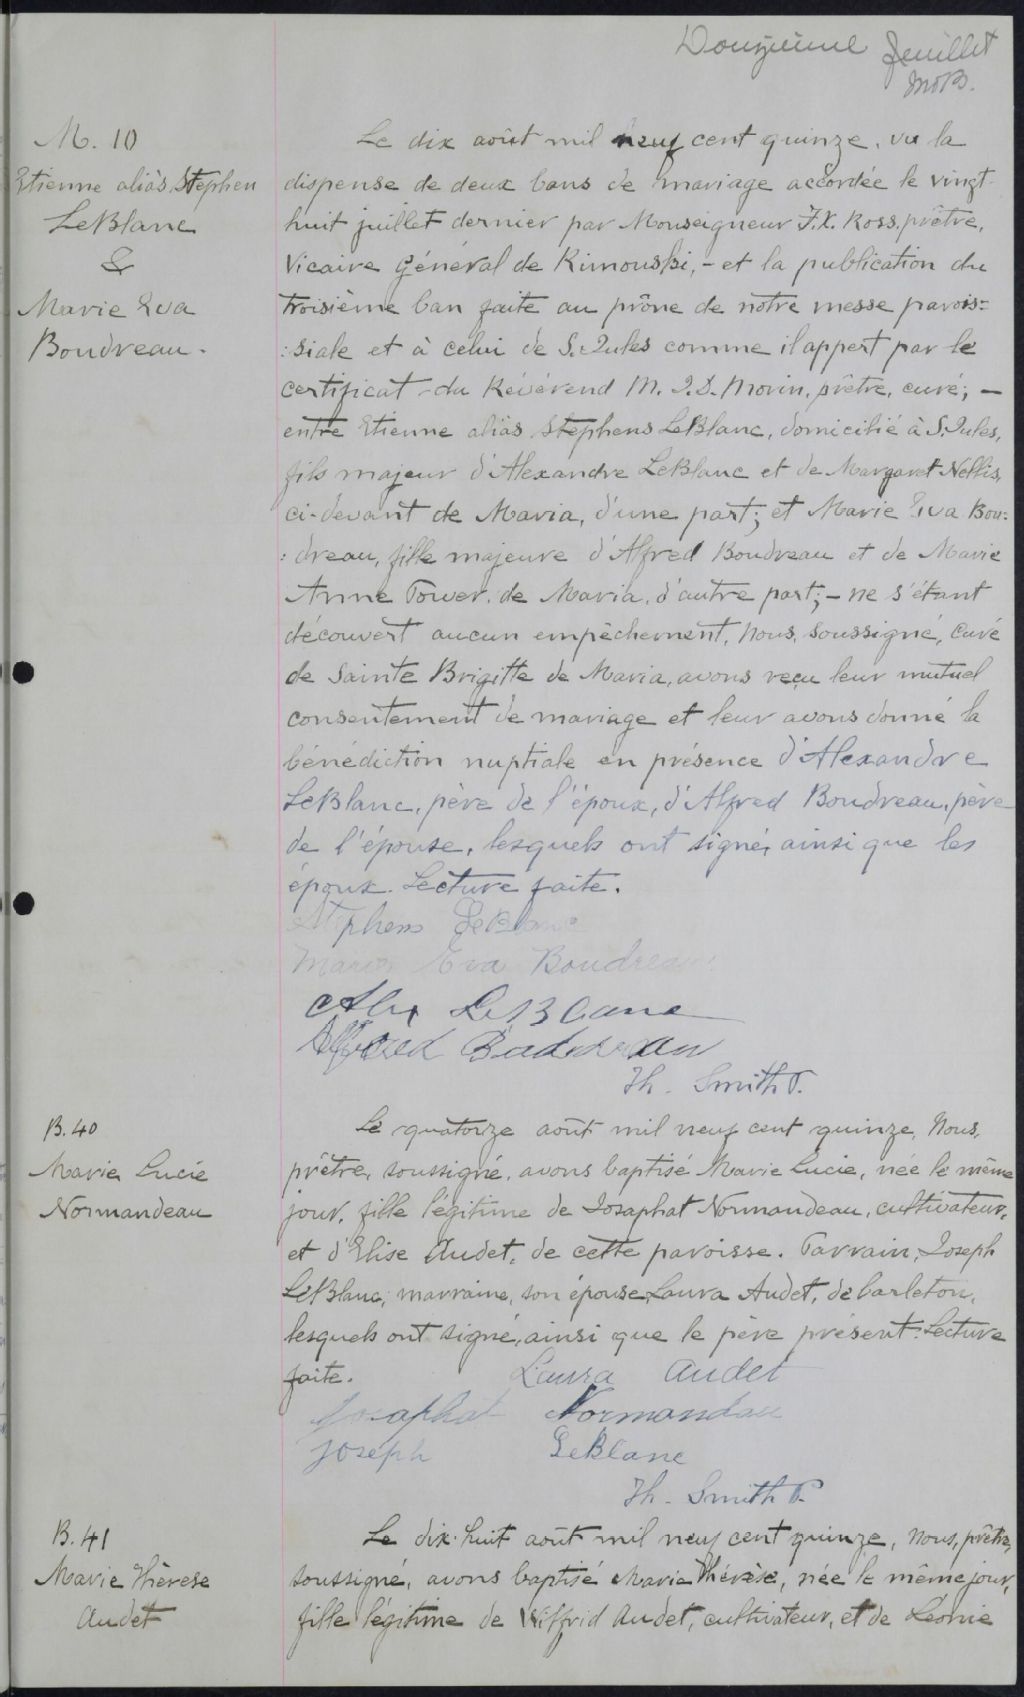 Douzième feuillet
M. 10
Etienne aliàs Stephen
LeBlanc
&
Marie Eva
Boudreau.
Le dix août mil neuf cent quinze, vu la
dispense de deux bans de mariage accordée le vingt-
huit juillet dernier par Monseigneur F.X. Ross, prêtre,
Vicaire Général de Rimouski, - et la publication du
troisième ban faite au prône de notre messe parois=
:siale et à celui de S. Jules comme il appert par le
certificat du Révérend M. J.D. Morin, prêtre, curé; -
entre Etienne aliàs Stephens LeBlanc, domicilié à S. Jules,
fils majeur d'Alexandre LeBlanc et de Margaret Nellis,
ci-devant de Maria, d'une part; et Marie Eva Bou=
:dreau, fille majeure d'Alfred Boudreau et de Marie
Anne Power, de Maria, d'autre part; - ne s'étant
découvert aucun empêchement, Nous, soussigné, curé
de Sainte Brigitte de Maria, avons reçu leur mutuel
consentement de mariage et leur avons donné la
bénédiction nuptiale en présence d'Alexandre
LeBlanc, père de l'époux, d'Alfred Boudreau, père
de l'épouse, lesquels ont signé, ainsi que les
époux. Lecture faite.
Stephens LeBlanc
Marie Eva Boudreau
Alex LeBlanc
Alfred Boudreau
Th. Smith P.
B. 40
Marie Lucie
Normandeau
Le quatorze août mil neuf cent quinze, Nous,
prêtre, soussigné, avons baptisé Marie Lucie, née le même
jour, fille légitime de Josaphat Normandeau, cultivateur,
et d'Elise Audet, de cette paroisse. Parrain, Joseph
LeBlanc; marraine, son épouse, Laura Audet, de Carleton,
lesquels ont signé, ainsi que le père présent. Lecture
faite. Laura Audet
Josaphat Normandeau
Joseph LeBlanc
Th. Smith P.
B. 41
Marie Thérèse
Audet
Le dix-huit août mil neuf cent quinze, Nous, prêtre,
soussigné, avons baptisé Marie Thérèse, née le même jour,
fille légitime de Wilfrid Audet, cultivateur, et de Léonie